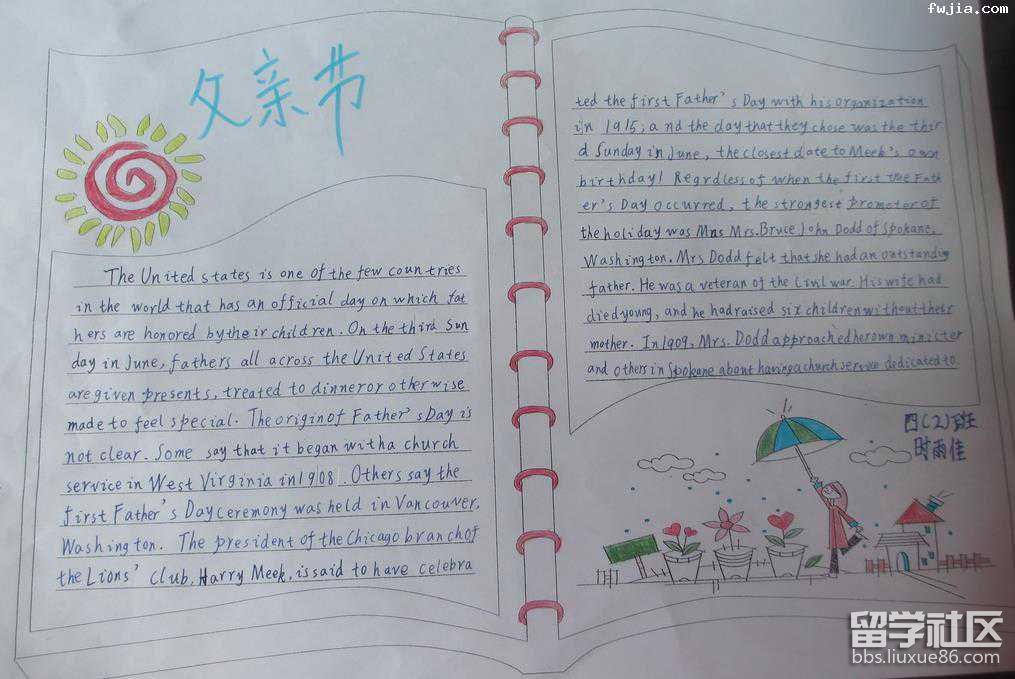 fwjia.com
父亲节
The United states is one of the few countries
in the world that has an official day on which fat
hers are honored by their children. On the third Sun
day in June, fathers all across the United States
are given presents, treated to dinner or otherwise
made to feel special. The origin of Father's Day is
not clear. Some say that it began with a church
service in West Virginia in 1908. Others say the
first Father's Day ceremony was held in Vancouver,
Washington. The president of the Chicago branch of
the Lions' Club, Harry Meek, is said to have celebra
ted the first Father's Day with his organization
in 1915; and the day that they chose was the thir
d Sunday in June, the closest date to Meek's own
birthday! Regrdless of when the first true Fath
er's Day occurred, the strongest promoter of
the holiday was Mns Mrs. Bruce John Dodd of Spokane,
Washington. Mrs Dodd felt that she had an outstanding
father. He was a veteran of the Civil war. His wife had
died young, and he had raised six children without their
mother. In 1909, Mrs. Dodd approached her own minister
and others in Spokane about having a church service dedicated to
四(2)班
时雨佳
留学社区
bbs.liuxue86.com